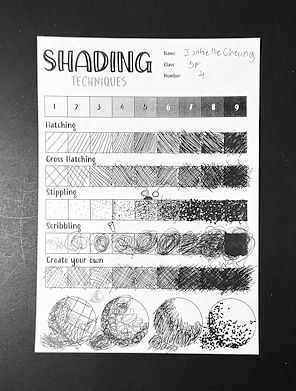 SHADING
TECHNIQUES
Name Isabelle Cheung
Class 5F
Number 4
1 2 3 4 5 6 7 8 9
Hatching
Cross Hatching
Stippling
Scribbling
Create your own